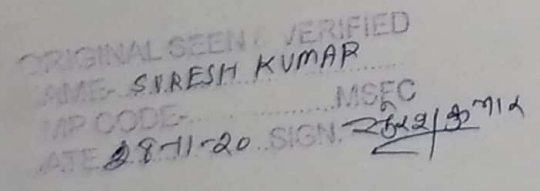 ORIGINAL SEEN & VERIFIED
NAME- SURESH KUMAR
EMP CODE-..................MSEC
DATE 28-11-20 SIGN. सुरेश कुमार